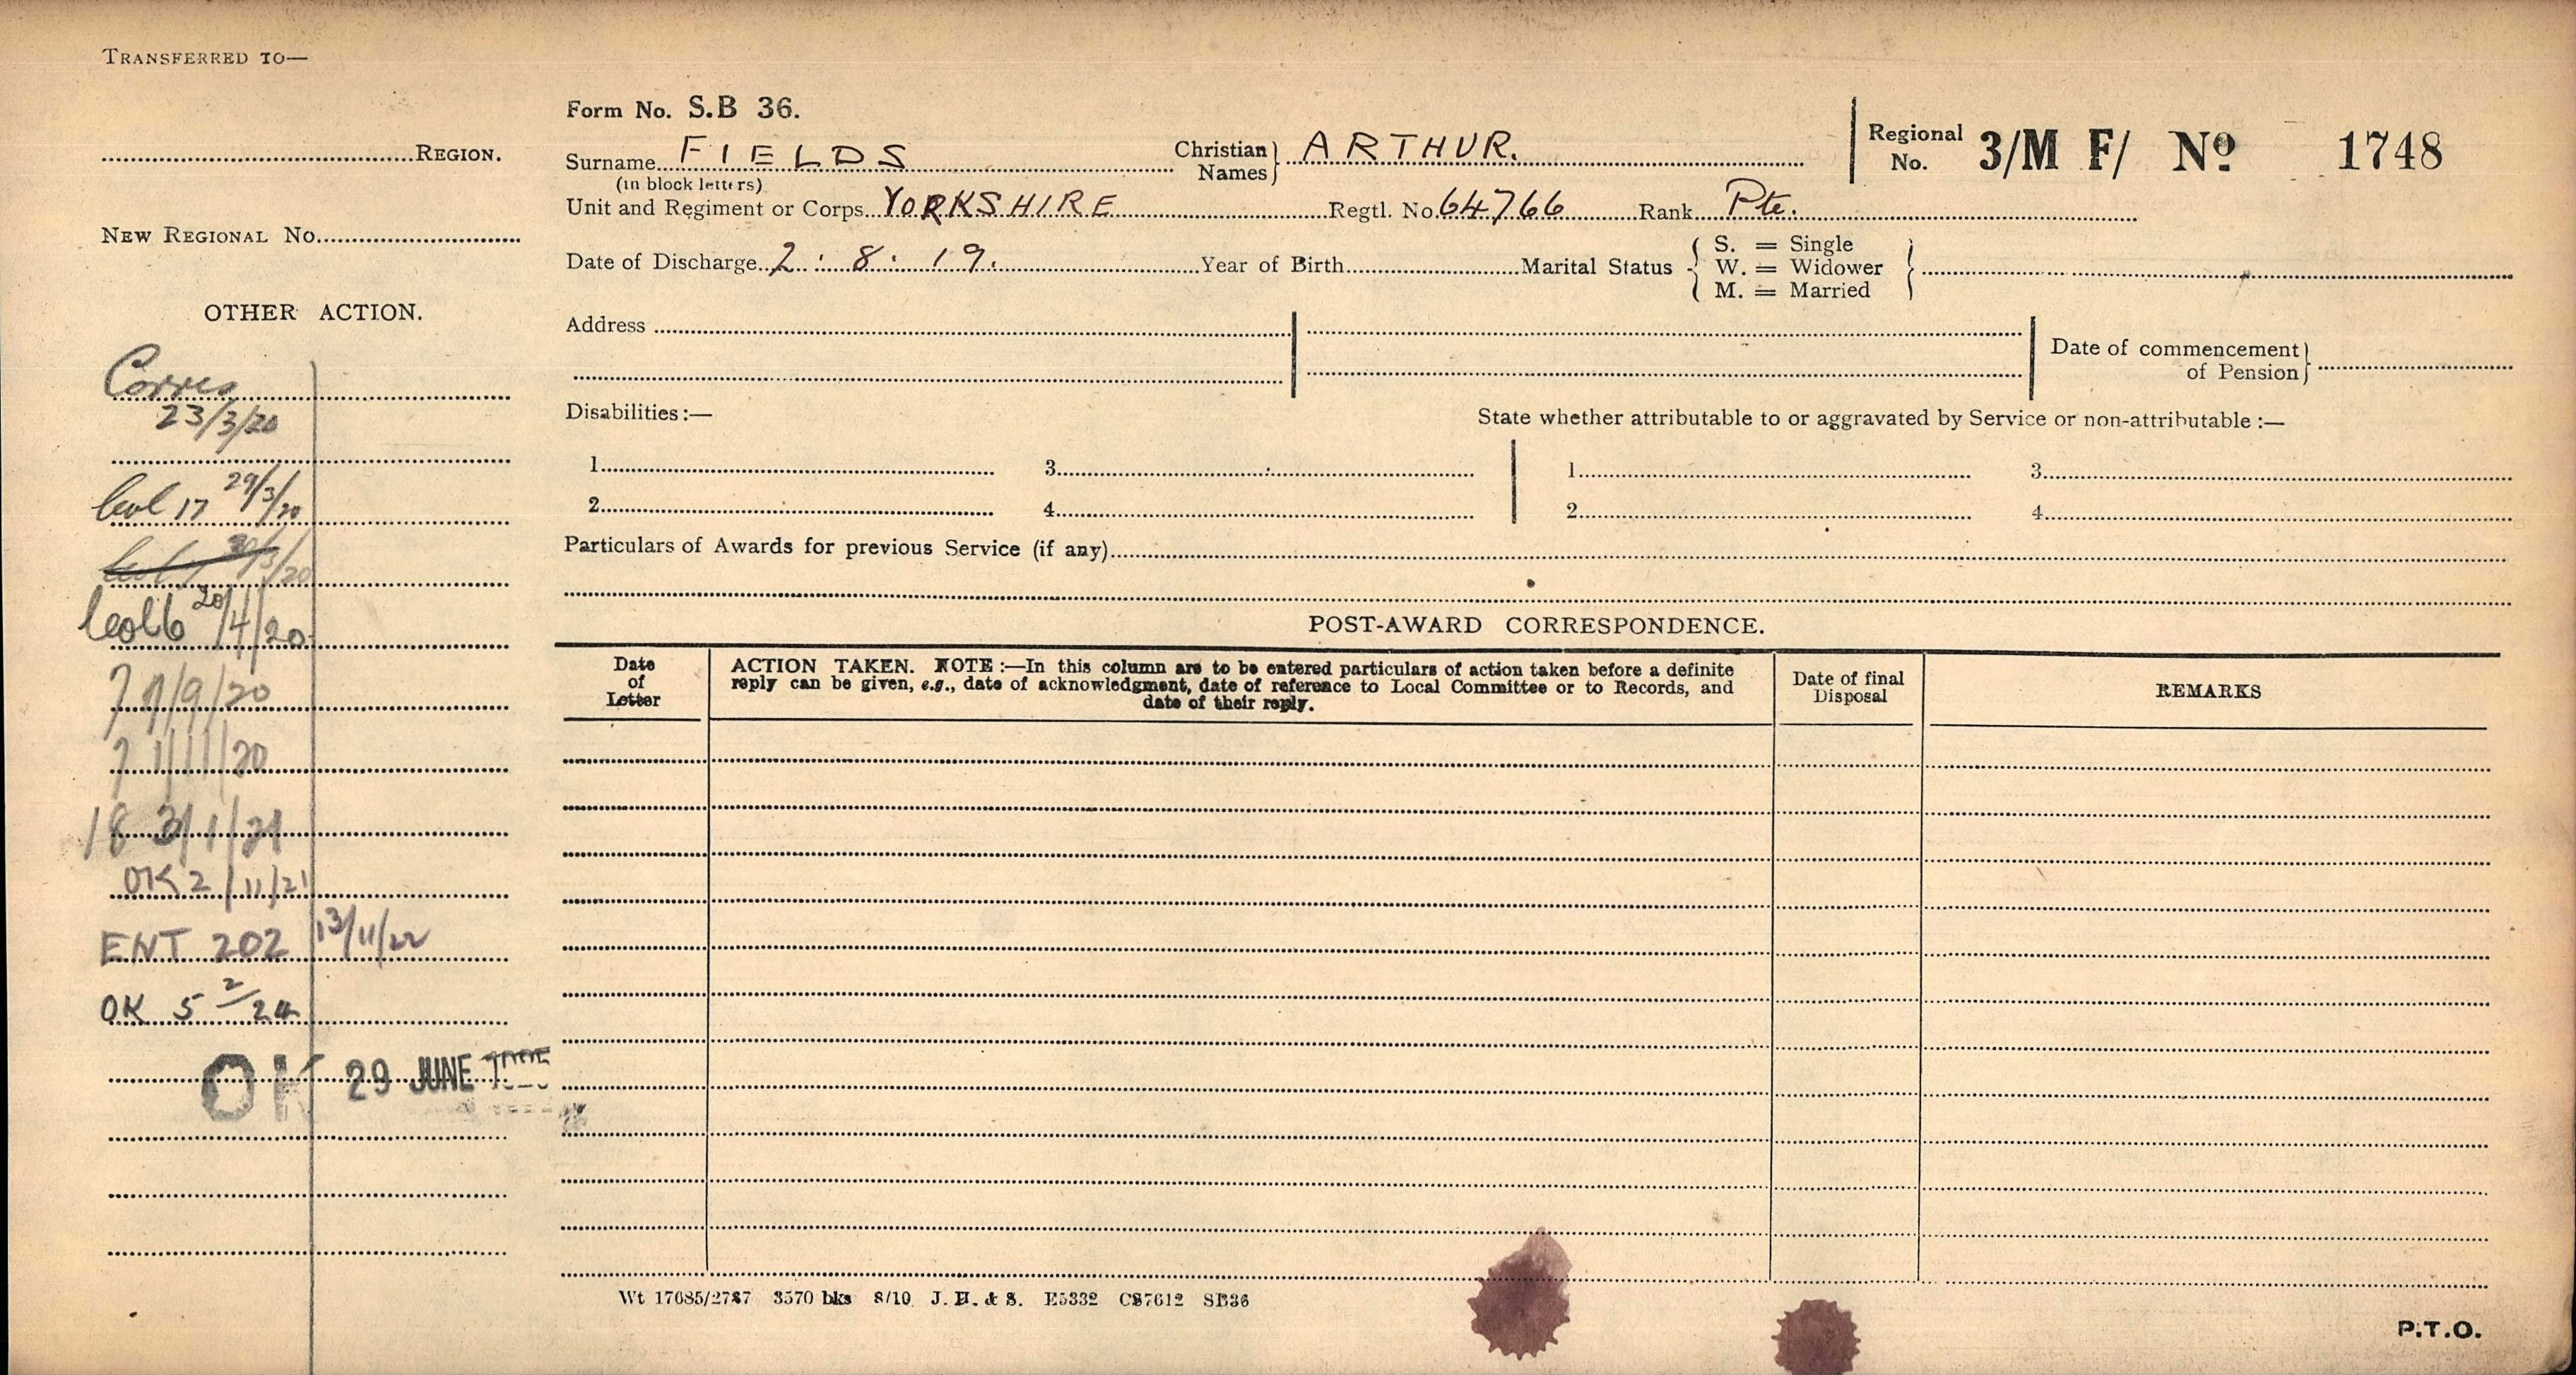 TRANSFERRED TO—
REGION.
NEW REGIONAL No.
OTHER ACTION.
Corres
23/3/20
17 29/3/20
20/4/20
7 1/11/20
OK 2/11/21
ENT 202 13/11/22
OK 5 2/24
OK 29 JUNE
Form No. S.B 36.
Surname FIELDS Christian Names ARTHUR. Regional No. 3/M F/ No 1748
(in block letters)
Unit and Regiment or Corps YORKSHIRE Regtl. No. 64766 Rank Pte.
Date of Discharge 2 . 8 . 19. Year of Birth Marital Status S. = Single
W. = Widower
M. = Married
Address
Date of commencement
of Pension
Disabilities :— State whether attributable to or aggravated by Service or non-attributable :—
1. 3. 1. 3.
2. 4. 2. 4.
Particulars of Awards for previous Service (if any)
POST-AWARD CORRESPONDENCE.
Date
of
Letter
ACTION TAKEN. NOTE :—In this column are to be entered particulars of action taken before a definite
reply can be given, e.g., date of acknowledgment, date of reference to Local Committee or to Records, and
date of their reply.
Date of final
Disposal
REMARKS
Wt 17685/2787 3570 bks 8/10 J. H. & S. E5332 CS7612 SB36
P.T.O.